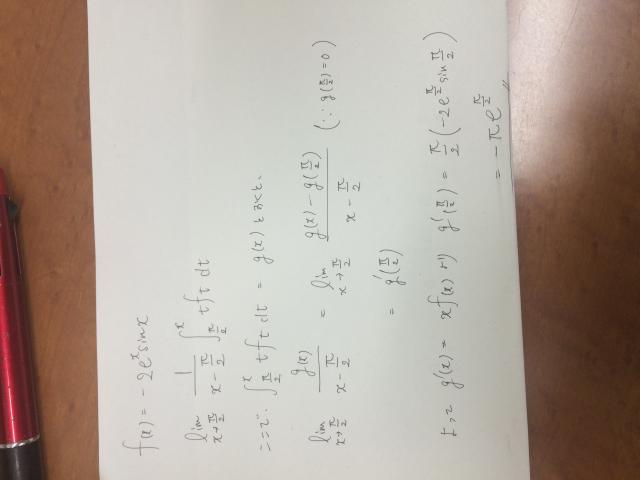 f(x) = -2e^x sinx
lim_{x→π/2} 1/(x - π/2) ∫_{π/2}^{x} tft dt
ここで. ∫_{π/2}^{x} tft dt = g(x) とおくと、
lim_{x→π/2} g(x)/(x - π/2) = lim_{x→π/2} (g(x) - g(π/2))/(x - π/2) (∵ g(π/2) = 0)
= g'(π/2)
よって g'(x) = xf(x) より g'(π/2) = π/2 (-2e^{π/2} sin π/2)
= -πe^{π/2} //